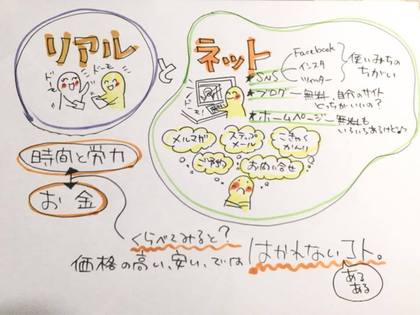 リアル
ドーモ
ドーモ
と
ネット
★SNS
Facebook
インスタ
ツイッター
使いみちの
ちがい
★ブログー無料、自分のサイト
どっちがいいの?
★ホームページー無料も
いろいろあるけど
メルマガ
ステップ
メール
こきゃく
かんり
ご予約
お問い合せ
時間と労力
お金
くらべてみると?
価格の高い、安い、では
はかれないコト。
ある
ある